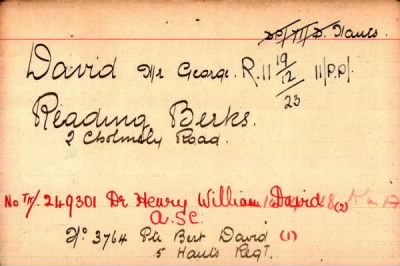 Hants.
David Mr George. R.11 19/12/23 11/P.P/.
Reading Berks.
2 Cholmely Road.
No T4/. 249301 Dr Henry William David (2)
A.S.C.
No 3764 Pte Bert David (1)
5 Hants Regt.